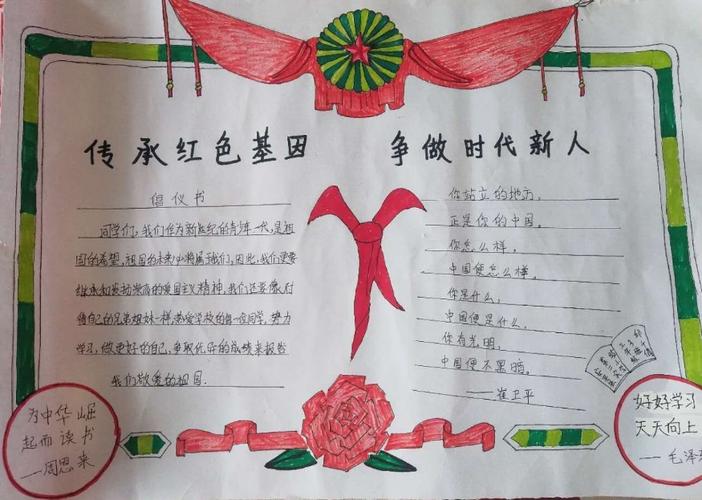 传承红色基因 争做时代新人
倡仪书
同学们,我们作为新世纪的青年一代,是祖
国的希望,祖国的未来必将属于我们,因此,我们更要
继承和发扬崇高的爱国主义精神,我们还要像对
待自己的兄弟姐妹一样,热爱学校的每一位同学,努力
学习,做更好的自己,争取优异的成绩来报答
我们敬爱的祖国.
你站立的地方,
正是你的中国。
你怎么样,
中国便怎么样。
你是什么,
中国便是什么。
你有光明,
中国便不黑暗。
——崔卫平
为中华崛
起而读书
——周恩来
好好学习
天天向上
——毛泽